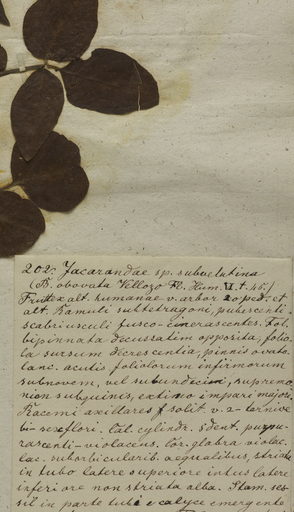 202. Jacarandae sp. subvelutina
(B. obovata Vellozo Fl. Flum. VI. t. 46.)
Frutex alt. humanae v. arbor 20 ped. et
alt. Ramuli subtetragoni, pubescenti
scabriusculi fusco-cinerascentes. Fol.
bipinnata decussatim opposita, folio-
la sursum decrescentia, pinnis ovato
lanc. acutis foliolorum infirmorum
subnovem, vel subundecim, supremo
subquinis, extimo impari majore
Racemi axillares solit. v. 2-
bi- sexflori. Cal. cylindr. 5dent. purpu-
rascenti-violaceus. Cor. glabra violac.
lac. suborbicularib. aequalibus, striata
in tubo latere superiore intus latere
inferiore non striata alba. Stam. ses-
sil in parte tubi e calyce emergente